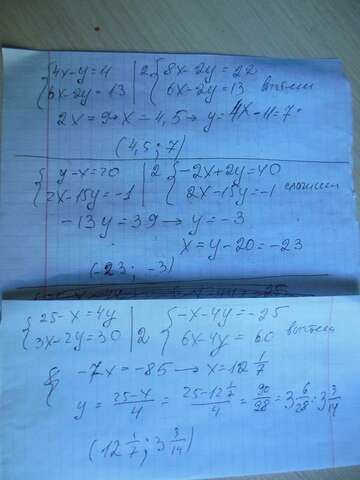 {4x-y=11 | 2 {8x-2y=22
{6x-2y=13 {6x-2y=13 вычтем
2x=9→x=4,5→y=4x-11=7
(4,5; 7)
{y-x=20 | 2 {-2x+2y=40
{2x-15y=-1 {2x-15y=-1 сложим
-13y=39→y=-3
x=y-20=-23
(-23; -3)
{25-x=4y {-x-4y=-25
{3x-2y=30 | 2 {6x-4y=60 вычтем
-7x=-85→x=12 1/7
y=(25-x)/4=(25-12 1/7)/4=90/28=3 6/28=3 3/14
(12 1/7; 3 3/14)